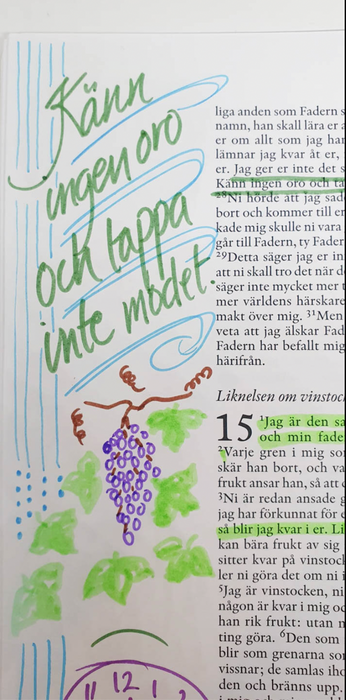 Känn
ingen oro
och tappa
inte modet
liga anden som Fadern
namn, han skall lära er
er om allt som jag har
lämnar jag kvar åt er,
er. Jag ger er inte det
Känn ingen oro och
28Ni hörde att jag
bort och kommer till er
kade mig skulle ni vara
går till Fadern, ty Fader
29Detta säger jag er
att ni skall tro det när
säger inte mycket mer
mer världens härskare
makt över mig. 31Men
veta att jag älskar Fad
Fadern har befallt mig
härifrån.
Liknelsen om
15 1Jag är den
och min fade
2Varje gren i mig
skär han bort, och
frukt ansar han, så att
3Ni är redan ansade
jag har förkunnat för
så blir jag kvar i er.
kan bära frukt av sig
sitter kvar på vinstoc
ler ni göra det om ni
5Jag är vinstocken, ni
någon är kvar i mig oc
han rik frukt: utan
ting göra. 6Den som
blir som grenarna
vissnar; de samlas
den och bränns upp.
12
11 1